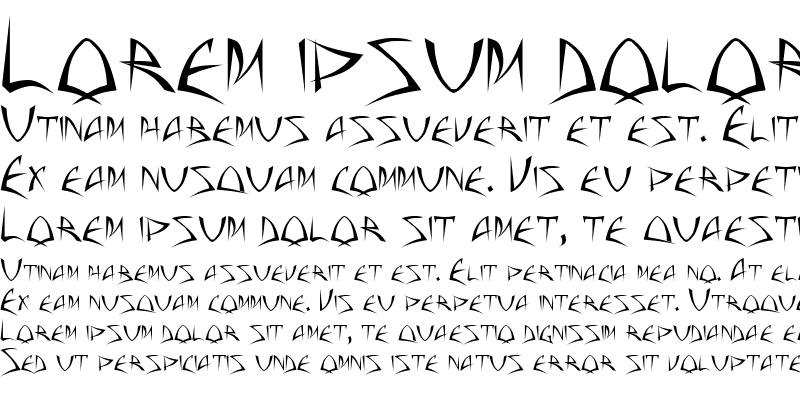 Lorem ipsum dolor
Utinam habemus assueverit et est. Elit
Ex eam nusquam commune. Vis eu perpet
Lorem ipsum dolor sit amet, te quaesti
Utinam habemus assueverit et est. Elit pertinacia mea no. At el
Ex eam nusquam commune. Vis eu perpetua interesset. Utroqu
Lorem ipsum dolor sit amet, te quaestio dignissim repudiandae e
Sed ut perspiciatis unde omnis iste natus error sit voluptate